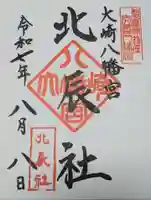 大崎八幡宮
北辰社
令和七年
八月八日
北辰社